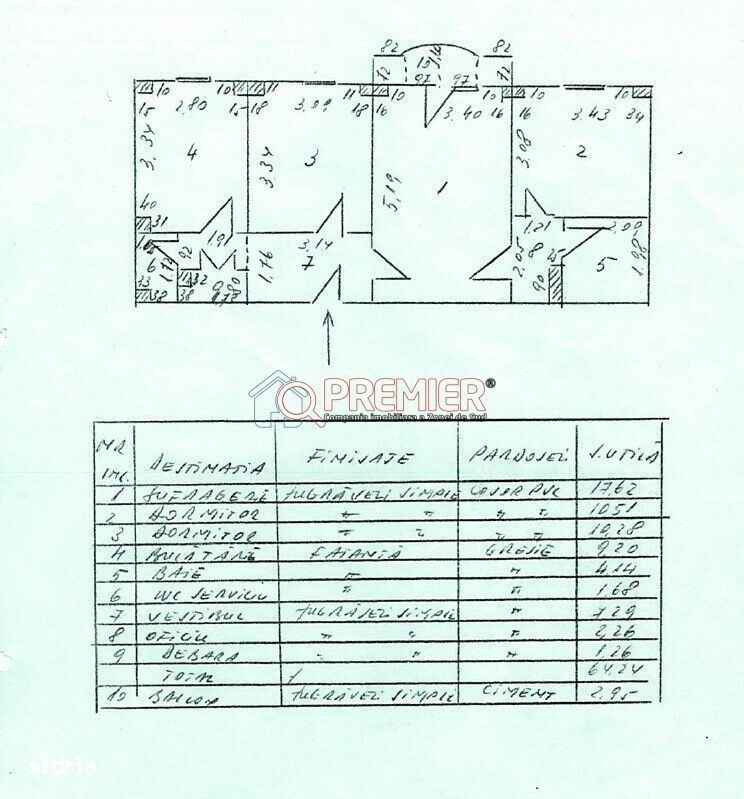 82 82
72 10 1,10 72
97 97
10 10 11 11 10 10 10
15 2,80 15 18 3,09 18 16 3,40 16 16 3,43 34
3,34 4 3,34 3 5,19 1 3,08 2
40
31
1,91 3,14 1,21 2,09
6 1,72 92 1,76 7 2,05 8 25 5 1,98
33 38 32 38 80 90
PREMIER®
Compania imobiliara a Zonei de Sud
NR INC. DESTINATIA FINISAJE PARDOSELI S.UTILĂ
1 SUFRAGERIE ZUGRĂVELI SIMPLE COVOR PVC 17,62
2 DORMITOR " " " " 10,51
3 DORMITOR " " " " 10,28
4 BUCĂTĂRIE FAIANȚĂ GRESIE 9,20
5 BAIE " " 4,14
6 WC SERVICIU " " 1,68
7 VESTIBUL ZUGRĂVELI SIMPLE " 7,29
8 OFICIU " " " 2,26
9 DEBARA " " " 1,26
TOTAL 64,24
10 BALCON ZUGRĂVELI SIMPLE CIMENT 2,95
storia